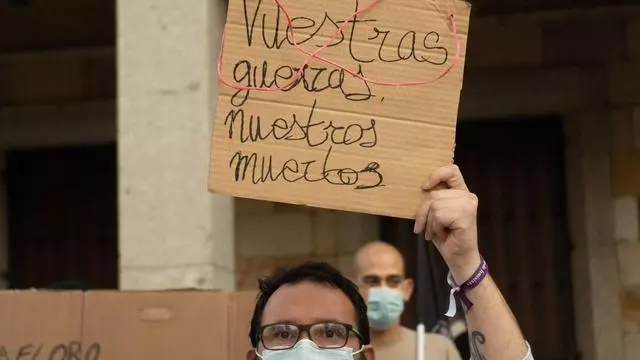 Vuestras
guerras,
nuestros
muertos